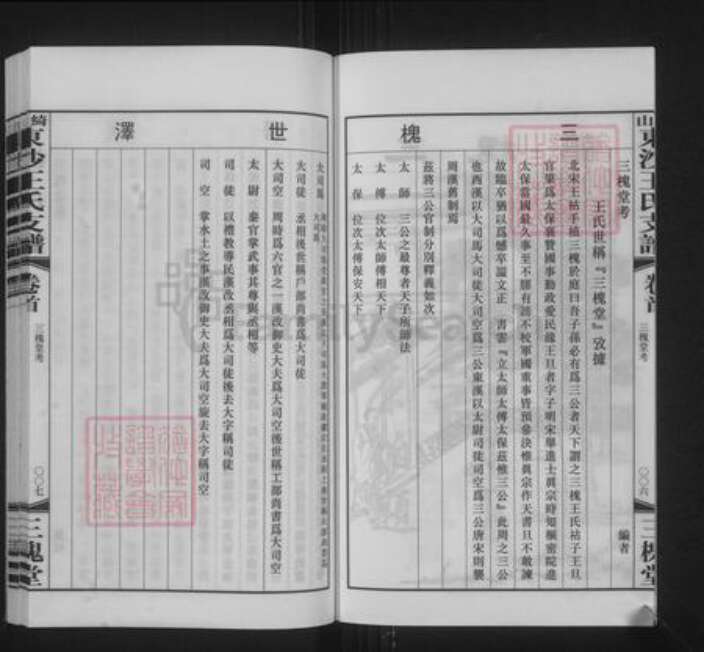 三槐
三槐堂考
編者
王氏世稱『三槐堂』攷據
北宋王祜手植三槐於庭曰吾子孫必有爲三公者天下謂之三槐王氏祜子王旦
官肇爲太保襄贊國事勤政愛民緣王旦者字子明宋舉進士眞宗時知樞密院進
太保當國最久事至不膠有謗不校軍國重事皆預參決惟眞宗作天書旦不敢諫
故臨卒猶以爲憾卒諡文正 書云『立太師太傅太保茲惟三公』此周之三公
也西漢以大司馬大司徒大司空爲三公東漢以太尉司徒司空爲三公唐宋則襲
周漢舊制焉
茲將三公官制分別釋義如次
太師 三公之最尊者天子所師法
太傅 位次太師傅相天下
太保 位次太傅保安天下
山東沙王氏支譜
卷首
三槐堂考
〇〇六
三槐堂
世澤
大司馬
大司徒 丞相後世稱戶部尚書爲大司徒
大司空 周時爲六官之一漢改御史大夫爲大司空後世稱工部尚書爲大司空
太尉 秦官掌武事其尊與丞相等
司徒 以禮教導民漢改丞相爲大司徒後去大字稱司徒
司空 掌水土之事漢改御史大夫爲大司空旋去大字稱司空
綺東沙王氏支譜
卷首
三槐堂考
〇〇七
三槐堂